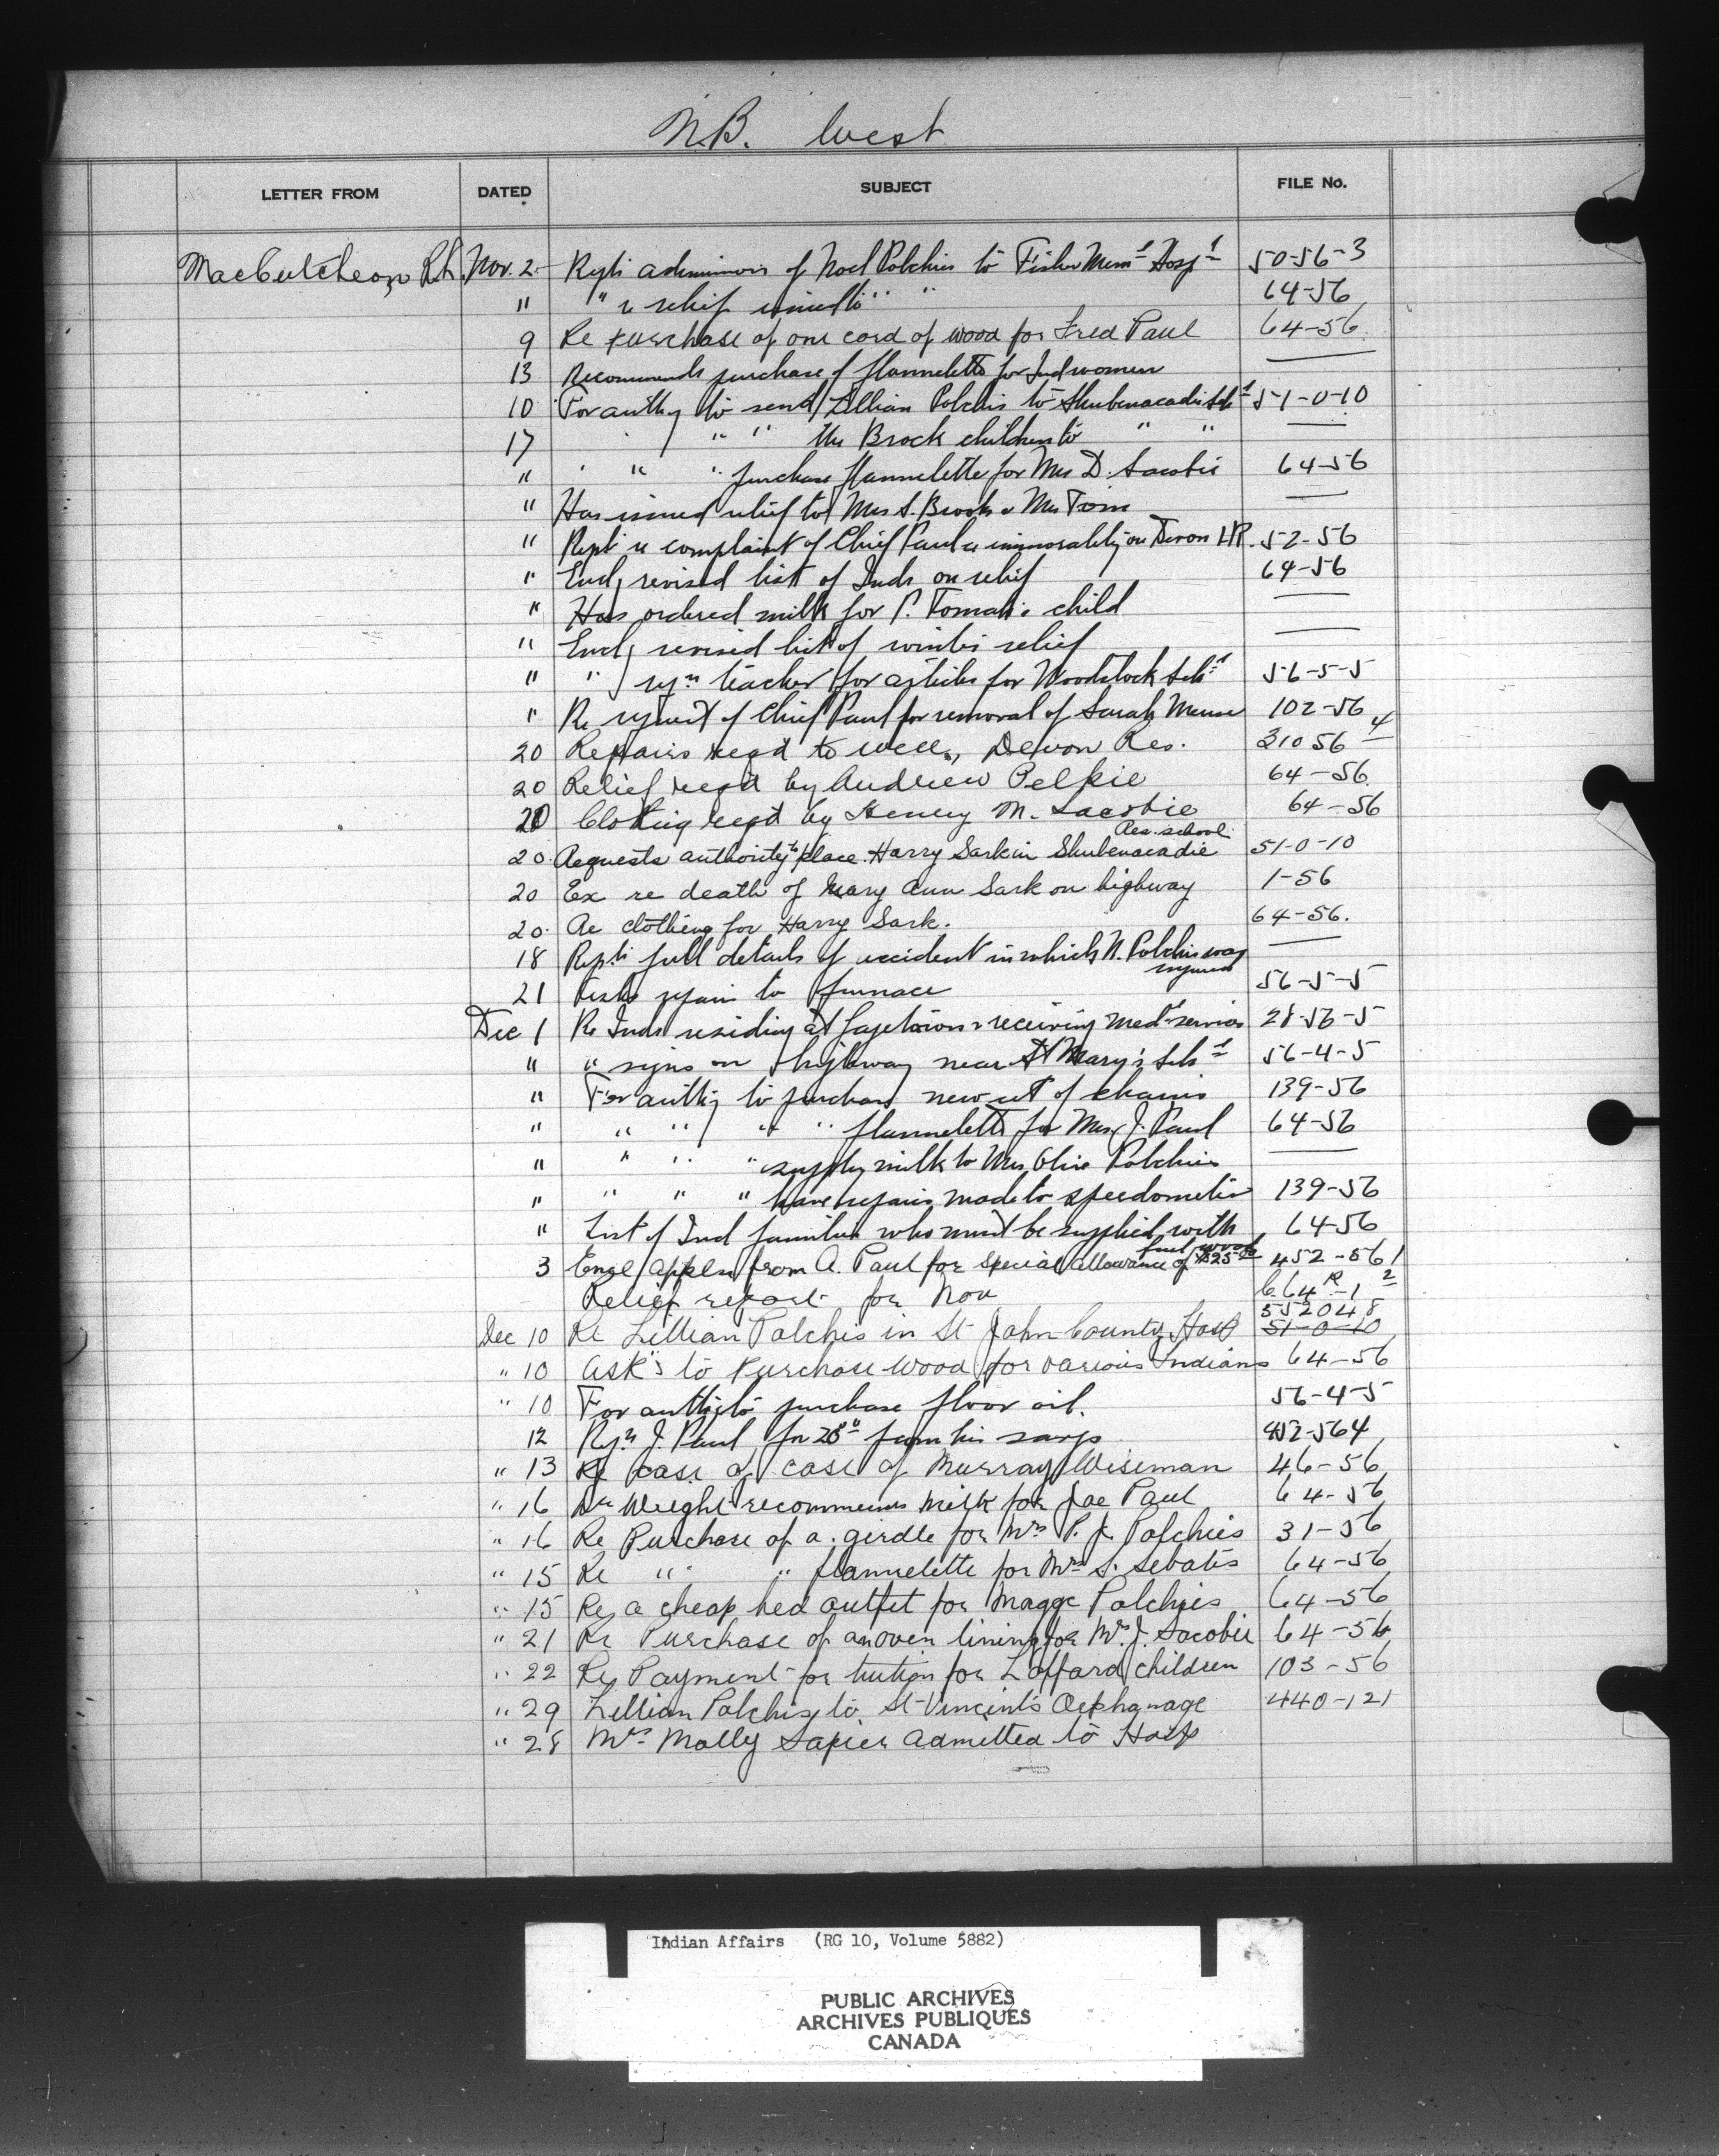 N.B. West
LETTER FROM DATED SUBJECT FILE No.
MacCutcheon Nov. 2 admission of Noel Polchies to Fisher Mem'l Hosp'l 50-56-3
" " re relief issued to " " 64-56
9 Re purchase of one cord of wood for Fred Paul 64-56
13 Recommends purchase of flannelette for Ind women —
10 For authy to send Lillian Polchis to Shubenacadie Sch'l 51-0-10
17 " " " the Brock children to " " —
" " " " purchase flannelette for Mrs D. Sacobie 64-56
" Has issued relief to Mrs S. Brooks & Mrs —
" Repts re complaint of Chief Paul re immorality on Devon I.R. 52-56
" Encl'g revised list of Inds on relief 64-56
" Has ordered milk for P. Tomah's child —
" Encl'g revised list of winter relief —
" " teacher for articles for Woodstock Sch'l 56-5-5
" Re request of Chief Paul for removal of Sarah Meuse 102-56
20 Repairs reqd to well, Devon Res. 31056-4
20 Relief reqd by Andrew Pelkie 64-56
20 Clothing reqd by Henry M. Sacobie 64-56
20 Requests authority to place Harry Sark in Shubenacadie Res. school 51-0-10
20 Ex re death of Mary Ann Sark on highway 1-56
20 Re clothing for Harry Sark. 64-56.
18 Repts full details of accident in which N. Polchis was injured —
21 repairs to furnace 56-5-5
Dec 1 Re Inds residing at Gagetown & receiving med'l services 28-56-5
" " signs on highway near St Mary's Sch'l 56-4-5
" For authy to purchase new set of chains 139-56
" " " " " flannelette for Mrs J. Paul 64-56
" " " " supply milk to Mrs Olive Polchies —
" " " " have repairs made to speedometer 139-56
" List of Ind families who must be supplied with fuel wood 64-56
3 Encl appln from A. Paul for special allowance of $25.00 452-561
Relief report for Nov 664 R-1 2
Dec 10 Re Lillian Polchis in St John County Hosp 552048 51-0-10
" 10 Ask's to Purchase wood for various Indians 64-56
" 10 For authy to purchase floor oil. 56-4-5
12 J. Paul for from his savgs 452-564
" 13 Re case of case of Murray Wiseman 46-56
" 16 Dr Wright recommends milk for Joe Paul 64-56
" 16 Re Purchase of a girdle for Mrs P. J. Polchies 31-56
" 15 Re " " flannelette for Mrs S. Sebatis 64-56
" 15 Re a cheap bed outfit for Magge Polchies 64-56
" 21 Re Purchase of an oven lining for Mrs J. Sacobie 64-56
" 22 Re Payment for tution for Laffard children 103-56
" 29 Lillian Polchis to St Vincent's Orphanage 440-121
" 28 Mrs Molly Sapier admitted to Hosp
Indian Affairs (RG 10, Volume 5882)
PUBLIC ARCHIVES
ARCHIVES PUBLIQUES
CANADA